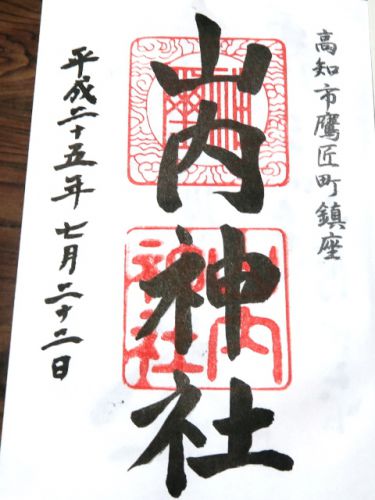 高知市鷹匠町鎮座
山内神社
平成二十五年七月二十二日
山内
神社